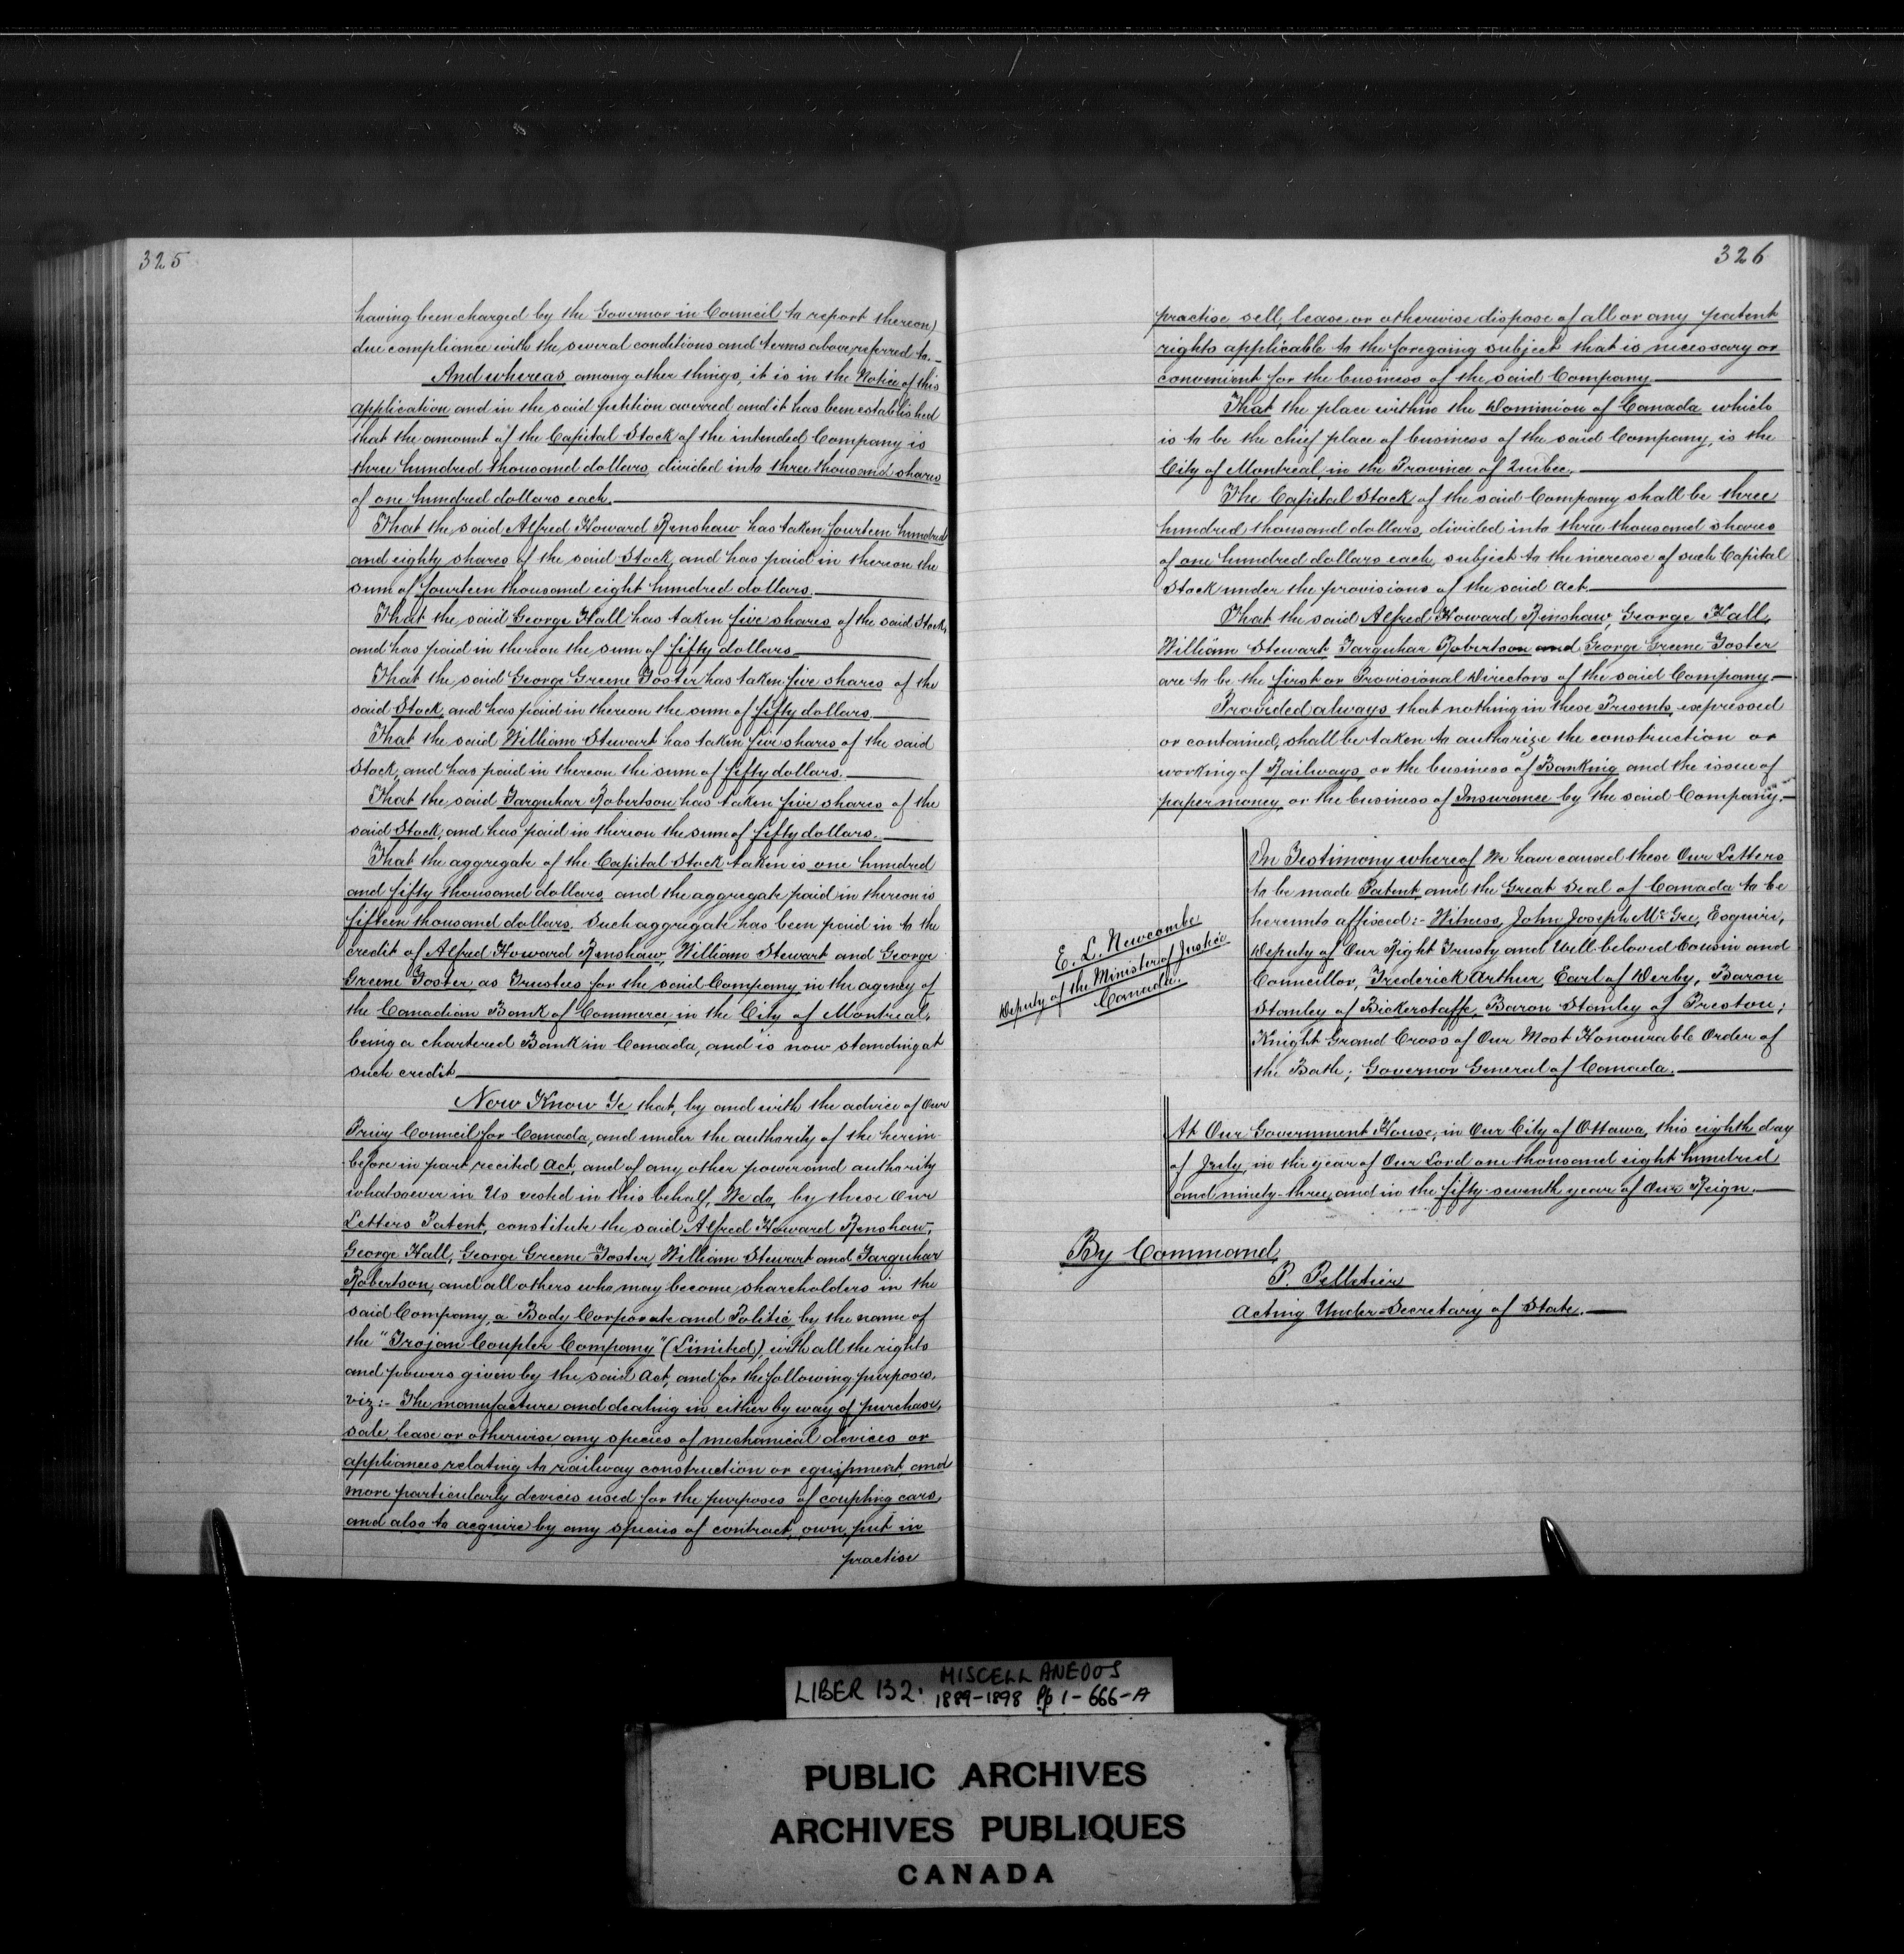 325
having been charged by the Governor in Council to report thereon)
due compliance with the several conditions and terms above referred to.
And whereas, among other things, it is in the Notice of this
application and in the said petition averred and it has been established
that the amount of the Capital Stock of the intended Company is
three hundred thousand dollars, divided into three thousand shares
of one hundred dollars each.
That the said Alfred Howard Renshaw has taken fourteen hundred
and eighty shares of the said Stock, and has paid in thereon the
sum of fourteen thousand eight hundred dollars.
That the said George Hall has taken five shares of the said Stock,
and has paid in thereon the sum of fifty dollars.
That the said George Greene Foster has taken five shares of the
said Stock, and has paid in thereon the sum of fifty dollars.
That the said William Stewart has taken five shares of the said
Stock, and has paid in thereon the sum of fifty dollars.
That the said Farquhar Robertson has taken five shares of the
said Stock, and has paid in thereon the sum of fifty dollars.
That the aggregate of the Capital Stock taken is one hundred
and fifty thousand dollars, and the aggregate paid in thereon is
fifteen thousand dollars. Such aggregate has been paid in to the
credit of Alfred Howard Renshaw, William Stewart and George
Greene Foster as Trustees for the said Company in the agency of
the Canadian Bank of Commerce, in the City of Montreal,
being a chartered Bank in Canada, and is now standing at
such credit
Now Know Ye that, by and with the advice of Our
Privy Council for Canada, and under the authority of the herein-
before in part recited Act, and of any other power and authority
whatsoever in Us vested in this behalf, We do, by these Our
Letters Patent, constitute the said Alfred Howard Renshaw,
George Hall, George Greene Foster, William Stewart and Farquhar
Robertson, and all others who may become shareholders in the
said Company, a Body Corporate and Politic, by the name of
the "Trojan Coupler Company" (Limited), with all the rights
and powers given by the said Act, and for the following purposes,
viz:- The manufacture and dealing in either by way of purchase,
sale, lease or otherwise, any species of mechanical devices or
appliances, relating to railway construction or equipment, and
more particularly devices used for the purposes of coupling cars,
and also to acquire by any species of contract, own, put in
practise
326
practise sell, lease or otherwise dispose of all or any patent
rights applicable to the foregoing subject that is necessary or
convenient for the business of the said Company
That the place within the Dominion of Canada which
is to be the chief place of business of the said Company, is the
City of Montreal, in the Province of Quebec.
The Capital Stock of the said Company shall be three
hundred thousand dollars, divided into three thousand shares
of one hundred dollars each, subject to the increase of such Capital
Stock under the provisions of the said Act.
That the said Alfred Howard Renshaw, George Hall,
William Stewart, Farquhar Robertson and George Greene Foster
are to be the first or Provisional Directors of the said Company.
Provided always that nothing in these Presents, expressed
or contained, shall be taken to authorize the construction or
working of Railways, or the business of Banking and the issue of
paper money, or the business of Insurance by the said Company.
In Testimony whereof We have caused these Our Letters
to be made Patent, and the Great Seal of Canada to be
hereunto affixed:- Witness, John Joseph McGee, Esquire,
Deputy of Our Right Trusty and Well-beloved Cousin and
Councillor, Frederick Arthur, Earl of Derby, Baron
Stanley of Bickerstaffe, Baron Stanley of Preston;
Knight Grand Cross of Our Most Honourable Order of
the Bath; Governor General of Canada.
E. L. Newcombe
Deputy of the Minister of Justice
Canada.
At Our Government House, in Our City of Ottawa, this eighth day
of July, in the year of Our Lord one thousand eight hundred
and ninety-three, and in the fifty-seventh year of Our Reign.
By Command,
P. Pelletier
Acting Under-Secretary of State.
LIBER 132: MISCELLANEOUS
1889-1898 Pp 1-666-A
PUBLIC ARCHIVES
ARCHIVES PUBLIQUES
CANADA